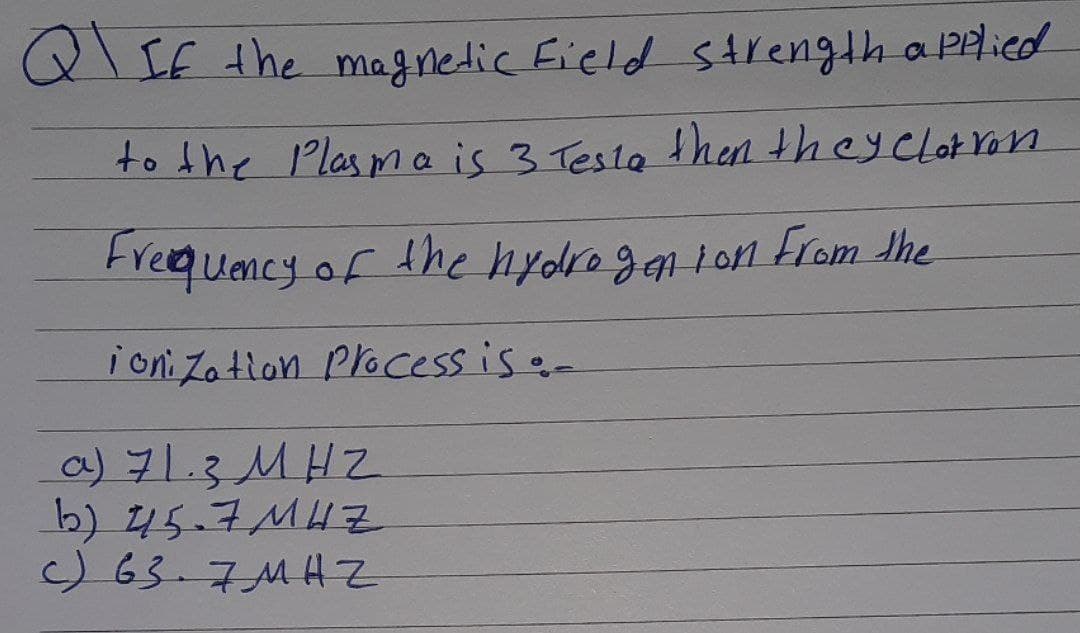 Q\ If the magnetic field strength applied
to the Plasma is 3 Tesla then the cyclotron
Frequency of the hydrogen ion from the
ionization Process is :-
a) 71.3 MHZ
b) 45.7 MHZ
c) 63.7 MHZ